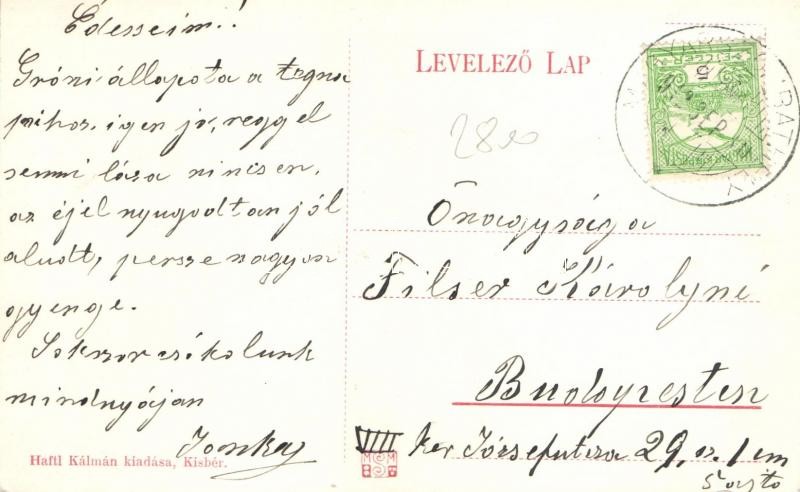 Édesseim!!
Gróni állapota a tegna
pihoz igen jó, reggel
semmi láza nincsen,
az éjel nyugodtan jól
aludt, persze nagyon
gyenge.
Sokszor csókolunk
mindnyájan
Haftl Kálmán kiadása, Kisbér.
LEVELEZŐ LAP
2800
FILLÉR
5
MAGYAR KIR. POSTA
Őnagysága
Filser Károlyné
Budapesten
VIII ker Józsefutcza 29. sz. 1 em
5 ajtó